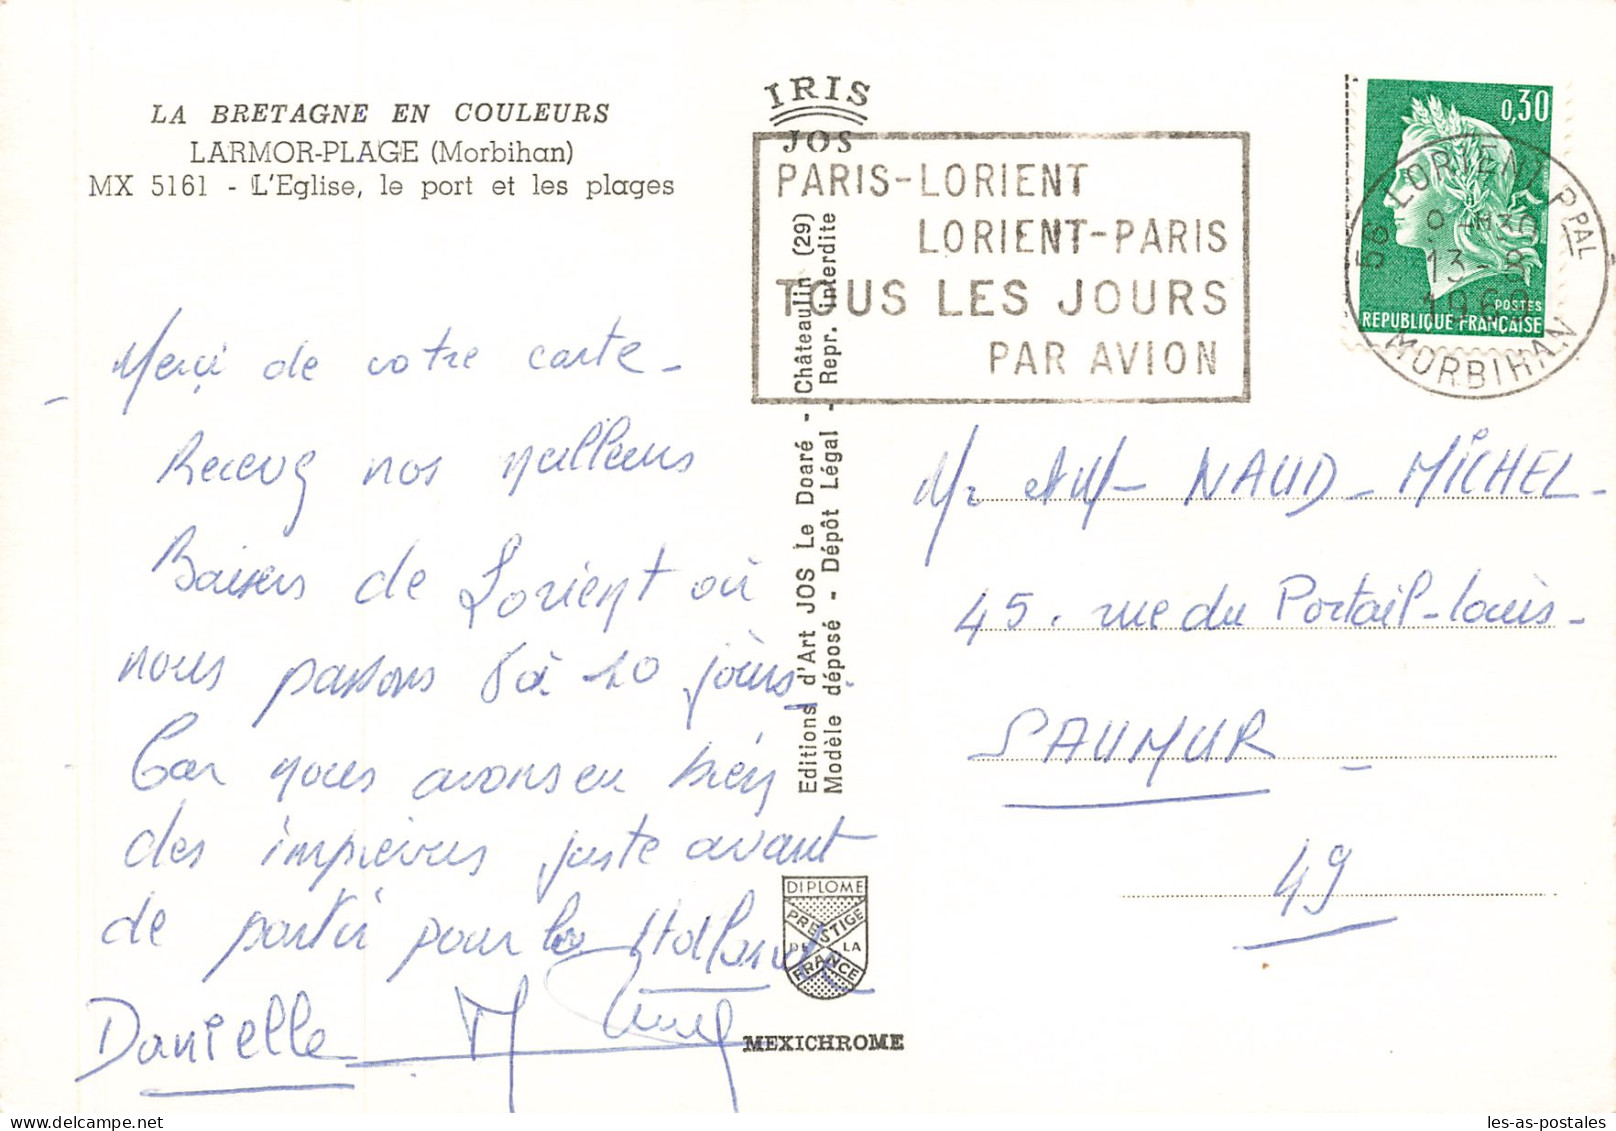 LA BRETAGNE EN COULEURS
LARMOR-PLAGE (Morbihan)
MX 5161 - L'Eglise, le port et les plages
IRIS
JOS
PARIS-LORIENT
LORIENT-PARIS
TOUS LES JOURS
PAR AVION
0,30
POSTES
REPUBLIQUE FRANÇAISE
56 LORIENT PPAL
13-8
1969
MORBIHAN
Merci de votre carte -
Recevez nos meilleurs
Baisers de Lorient où
nous passons 8 à 10 jours.
Car nous avons eu bien
des imprévus juste avant
de partir pour la Hollande
Danielle
Editions d'Art JOS Le Doaré - Châteaulin (29)
Modèle déposé - Dépôt Légal - Repr. interdite
DIPLOME
PRESTIGE
DE LA
FRANCE
MEXICHROME
Mr et Mme NAUD - MICHEL -
45, rue du Portail-Louis -
SAUMUR -
49
les-as-postales